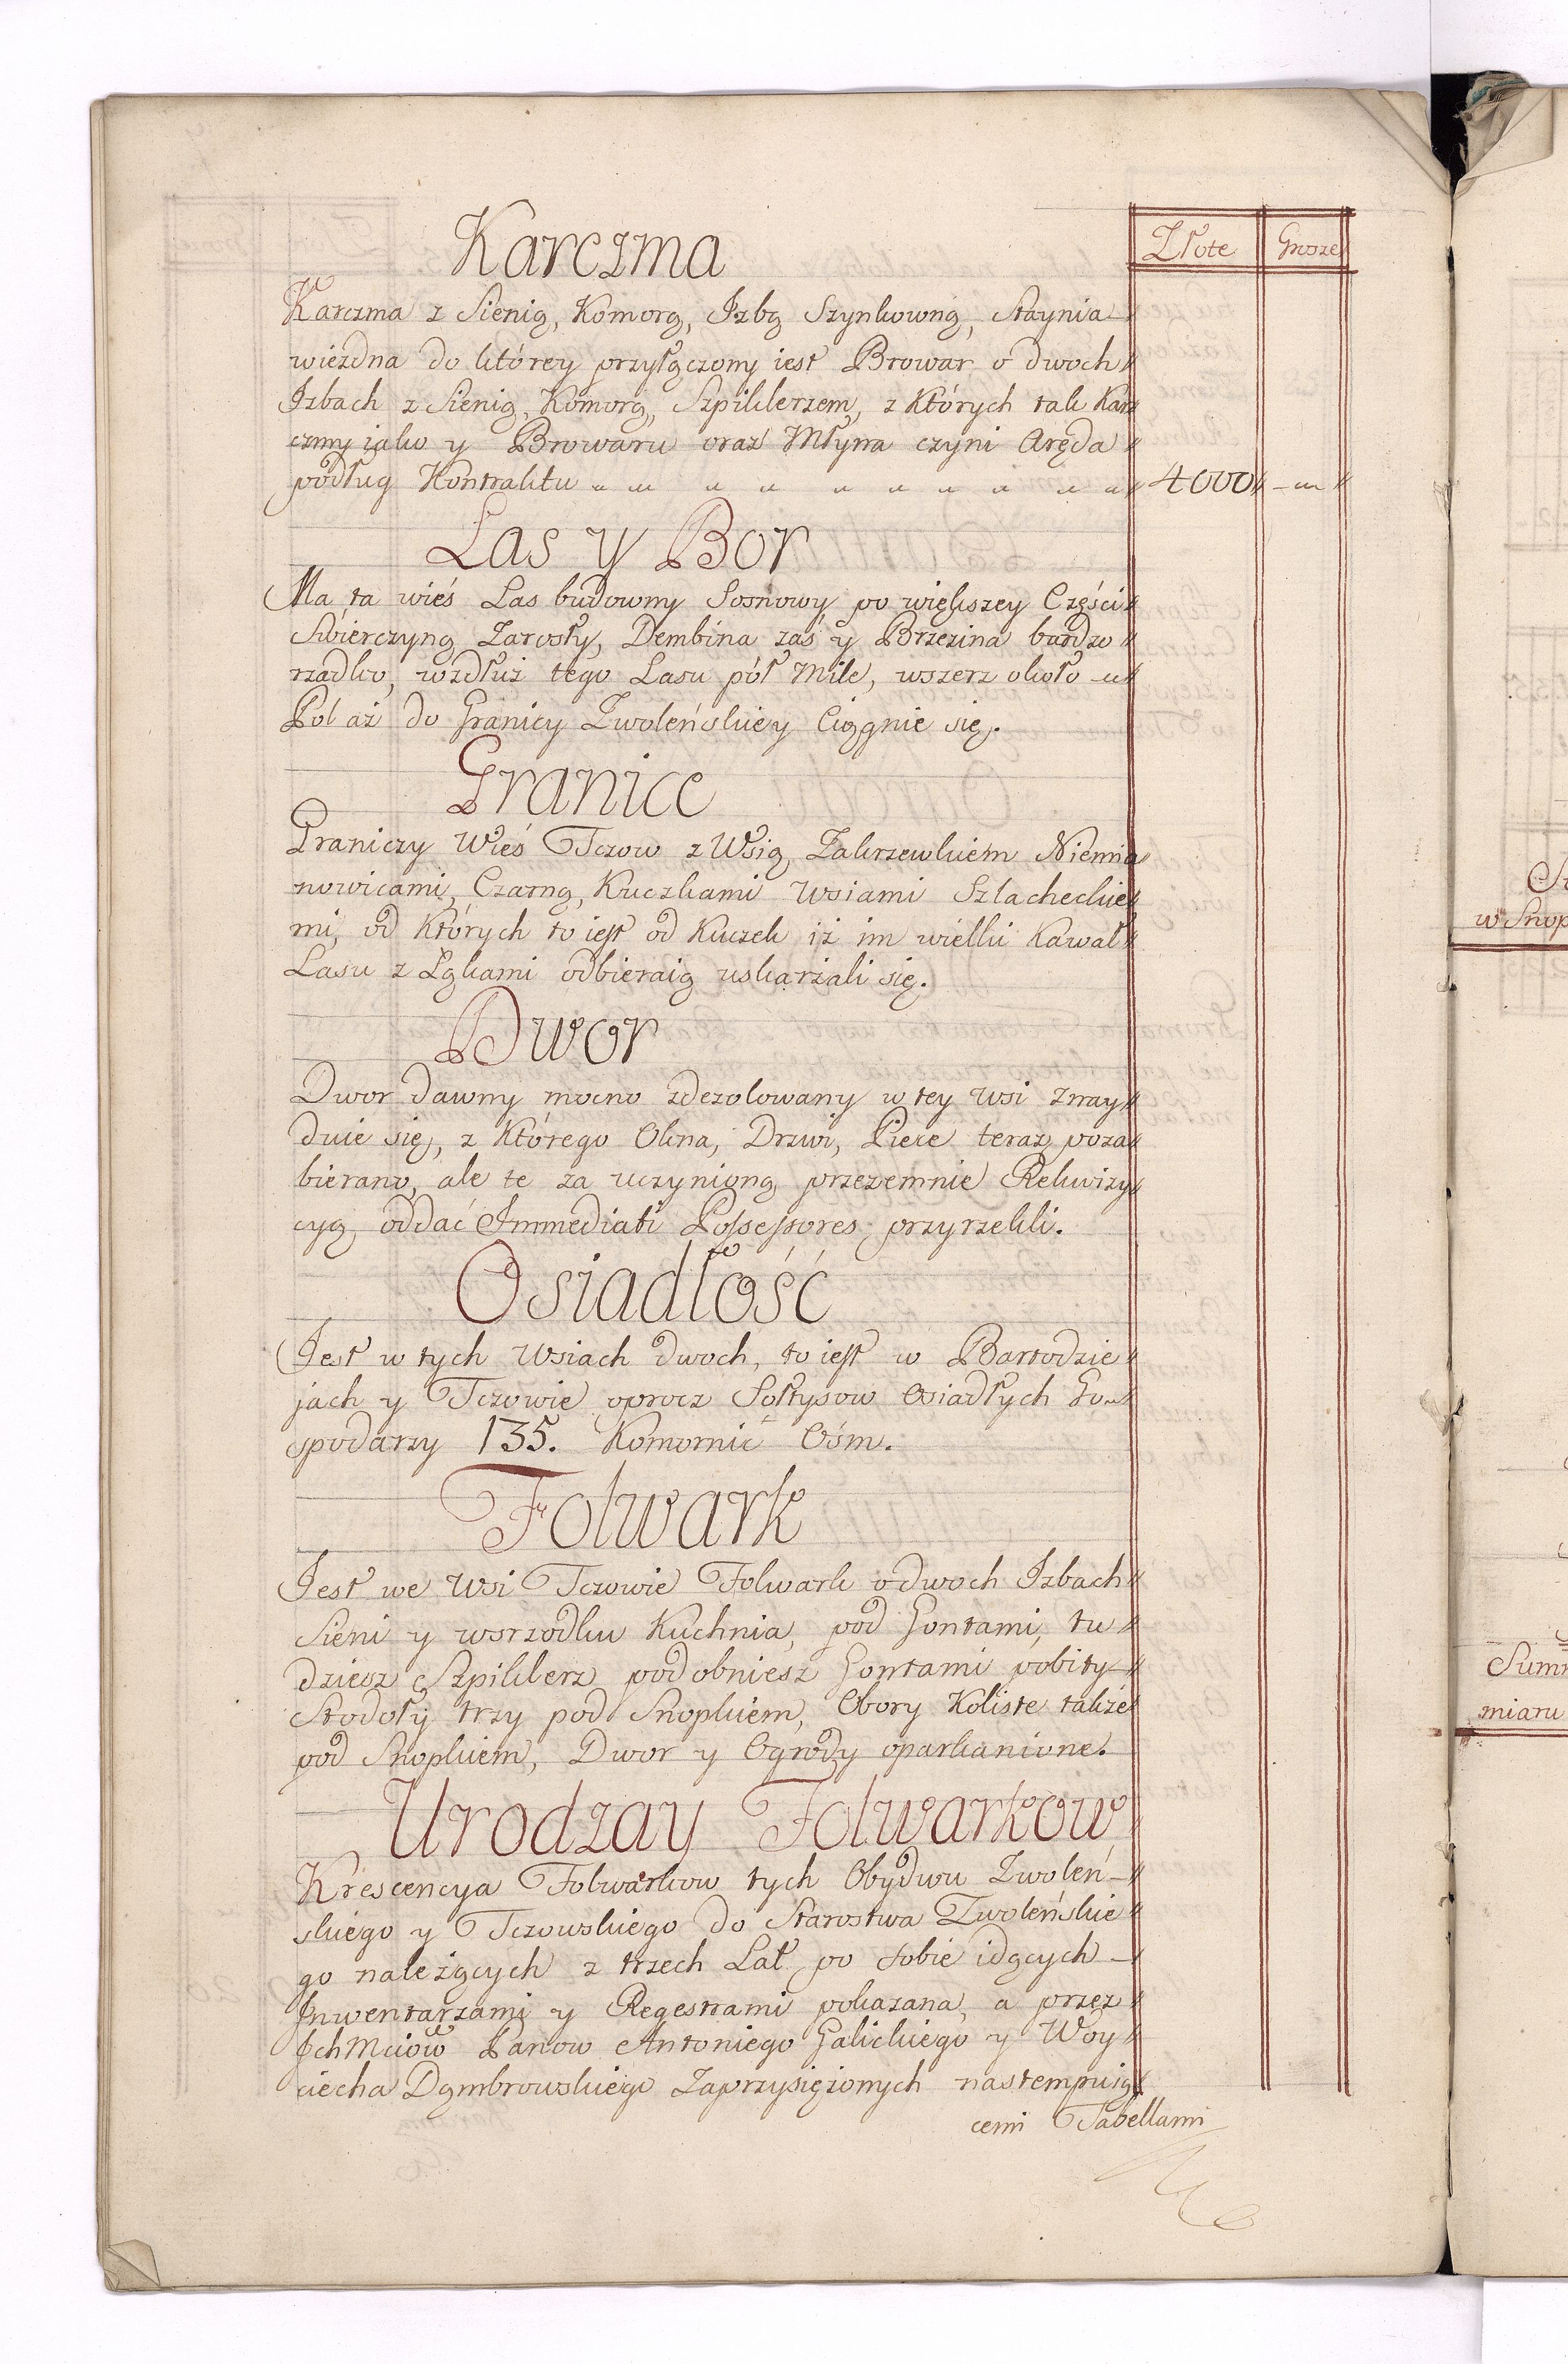 Karczma
Złote Grosze
Karczma z Sienią, Komorą, Izbą Szynkowną, Staynia
wiezdna do którey przyłączony iest Browar o dwoch
Izbach z Sienią, Komorą, Szpiklerzem, z Których tak Kar
czmy iako y Browaru oraz Młyna czyni Aręda
podług Kontraktu 4000
Las y Bor
Ma ta wieś Las budowny Sosnowy po większey Części
Swierczyną Zarosły, Dembina zaś y Brzezina bardzo
rzadko, wzdłuż tego Lasu pół Mile, wszerz około
Pol aż do Granicy Zwoleńskiey Ciągnie się.
Granice
Graniczy Wieś Tczow z Wsią Zakrzewkiem Niemia
nowicami, Czarną, Kuczkami Wsiami Szlacheckie
mi, od Których to iest od Kuczek iż im wielki Kawał
Lasu z Łąkami odbieraią uskarżali się.
Dwor
Dwor dawny mocno zdezolowany w tey Wsi Znay
duie się, z Którego Okna, Drzwi, Piece teraz poza
bierano, ale te za uczynioną przezemnie Rekwizy
cyą oddać Immediati Possessores przyrzekli.
Osiadłość
Jest w tych Wsiach dwoch, to iest w Bartodzie
jach y Tczowie oprocz Sołtysow Osiadłych Go
spodarzy 135. Komornic Ośm.
Folwark
Jest we Wsi Tczowie Folwark o dwoch Izbach
Sieni y wsrzodku Kuchnia, pod Gontami, tu
dziesz Szpiklerz podobniesz Gontami pobity
Stodoły trzy pod Snopkiem, Obory Koliste także
pod Snopkiem, Dwor y Ogrody oparkanione.
Urodzay Folwarkow
Krescencya Folwarkow tych Obydwu Zwoleń
skiego y Tczowskiego do Starostwa Zwoleńskie
go należących z trzech Lat po sobie idących
Inwentarzami y Regestrami pokazana, a przez
IchMciów Panow Antoniego Galickiego y Woy
ciecha Dąmbrowskiego Zaprzysiężonych nastempuią
cemi Tabellami
w Snop
miaru